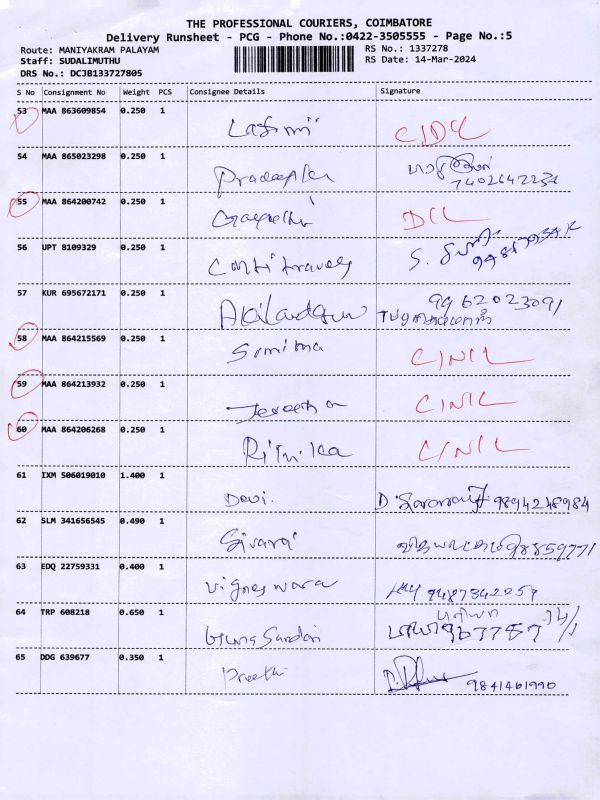 THE PROFESSIONAL COURIERS, COIMBATORE
Delivery Runsheet - PCG - Phone No.:0422-3505555 - Page No.:5
Route: MANIYAKRAM PALAYAM RS No.: 1337278
Staff: SUDALIMUTHU RS Date: 14-Mar-2024
DRS No.: DCJB133727805
S No Consignment No Weight PCS Consignee Details Signature
53 MAA 863609854 0.250 1
54 MAA 865023298 0.250 1 7402642234
55 MAA 864200742 0.250 1
56 UPT 8109329 0.250 1
57 KUR 695672171 0.250 1 9962023091
58 MAA 864215569 0.250 1 CINIL
59 MAA 864213932 0.250 1 CINIL
60 MAA 864206268 0.250 1 Rithika CINIL
61 IXM 506019010 1.400 1 Devi. 9894248984
62 SLM 341656545 0.490 1
63 EDQ 22759331 0.400 1 Vigneswara 9487342257
64 TRP 608218 0.650 1
65 DDG 639677 0.350 1 Preethi 9841461990